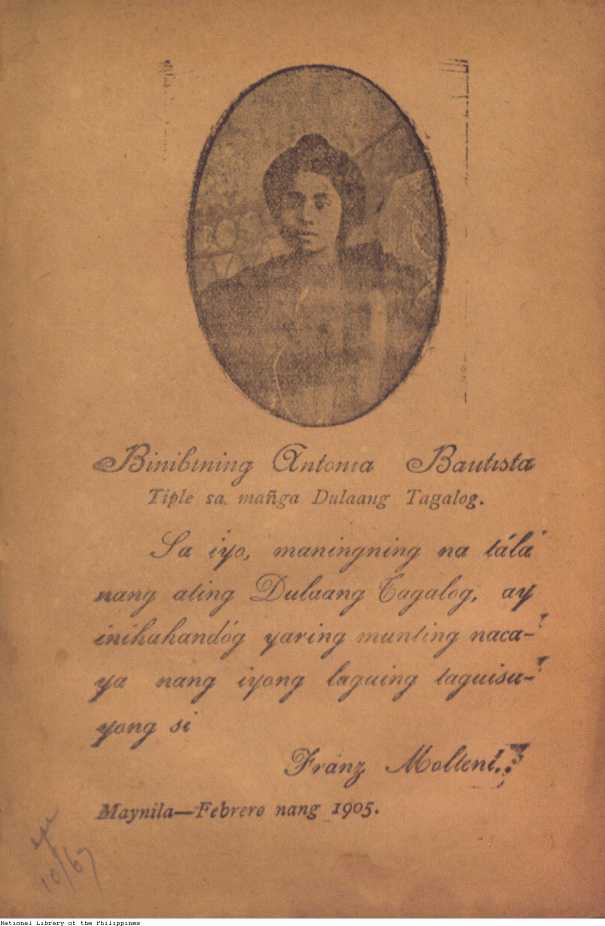 Binibining Antonia Bautista
Tiple sa mañga Dulaang Tagalog.
Sa iyo, maningning na tálà
nang ating Dulaang Tagalog, ay
inihahandóg yaring munting naca-
ya nang iyong laguing taguisu-
yong si
Franz Molteni.
Maynila—Febrero nang 1905.
10/67
National Library of the Philippines